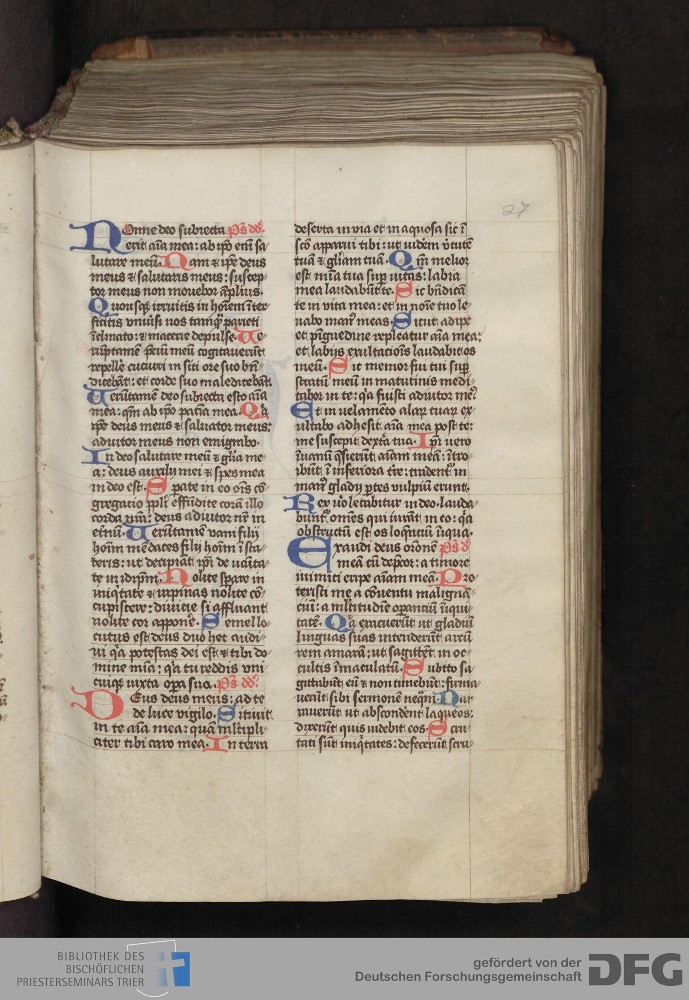 27
Nonne deo subiecta ps̄ dd̄.
erit aīa mea: ab ip̄o em̄ sa
lutare meū. Nam ⁊ ip̄e deus
meus ⁊ salutaris meus: suscep
tor meus non mouebor āplius.
Quousq̄ irruitis in hoīem īter
ficitis vniu̇si uos tamq̄ȝ parieti
īclinato: ⁊ macerie depulse. Ve
rūptamē p̄ciū meū cogitauerūt
repelle᷑ cucurri in siti ore suo bn̄
dicebāt: et corde suo maledicebāt.
Verūtamē deo subiecta esto aīa
mea: qm̄ ab ip̄o patiā mea. Qꝛ
ip̄e deus meus ⁊ saluator meus:
adiutor meus non emigrabo.
In deo salutare meū ⁊ gl̄ia me
a: deus auxilij mei ⁊ spes mea
in deo est. Sperate in eo oīs cō
gregacio pp̄li effūdite corā illo
corda vr̄a: deus adiutor nr̄ in
et̄nū. Verūtamē vani filij
hoīm mēdaces filij hoīm ī sta
teris: ut decipiāt ip̄i de uāita
te in idip̄m. Nolite sp̄are in
iniq̇tate ⁊ rapinas nolite cō
cupiscere: diuicie si affluant
nolite cor appone᷑. Semel lo
cutus est deus duo hec audi
ui q̇a potestas dei est ⁊ tibi do
mine mīa: q̇a tu reddis vni
cuiq̄ iuxta opa sua. ps̄ dd̄.
Deus deus meus: ad te
de luce vigilo. Sitiuit
in te aīa mea: quā ml̄tipli
citer tibi caro mea. In terra
deserta in via et in aquosa sic ī
sc̄o apparui tibi: ut uidēm v̇tutē
tuā ⁊ gl̄iam tuā. Qm̄ melior
est mīa tua sup̄ vitas: labia
mea laudabūt te. Sic bn̄dicā
te in vita mea: et in noīe tuo le
uabo man᷒ meas. Sicut adipe
et pīguedine repleatur aīa mea:
et labijs exultacioīs laudabit os
meū. Sic memor fui tui sup̄
stratū meū in matutinis medi
tabor in te: q̇a fuisti adiutor me᷒
Et in uelamēto alaꝝ tuaꝝ ex
ultabo adhesit aīa mea post te:
me suscepit dext̄a tua. Ip̄i uero
ī uanū q̄sierūt aīam meā: ītro
ibūt ī inferiora t̄re: tradent᷑ in
man᷒ gladij p̄tes vulpiū erunt.
Rex v̇o letabitur in deo. lauda
bunt᷑ om̄es qui iurāt in eo: q̇a
obstructū est os loq̄ntiū iniqua.
Exaudi deus or̄onē ps̄ d̄
meā cū dep̄cor: a timore
inimici eripe aīam meā. Pro
texisti me a cōuentu malignā
ciū: a ml̄titudīe operantiū īiqui
tatē. Q̇a exacuerūt ut gladiū
linguas suas intenderūt arcū
rem amarā: ut sagittēt in oc
cultis īmaculatū. Subito sa
gittabūt eū ⁊ non timebūt: firma
uerūt sibi sermonē neq̄m. Nar
rauerūt ut absconderent laqueos:
dixerūt quis uidebit eos. Scru
tati sūt iniq̇tates: defecerūt scru
BIBLIOTHEK DES
BISCHÖFLICHEN
PRIESTERSEMINARS TRIER
gefördert von der
Deutschen Forschungsgemeinschaft
DFG